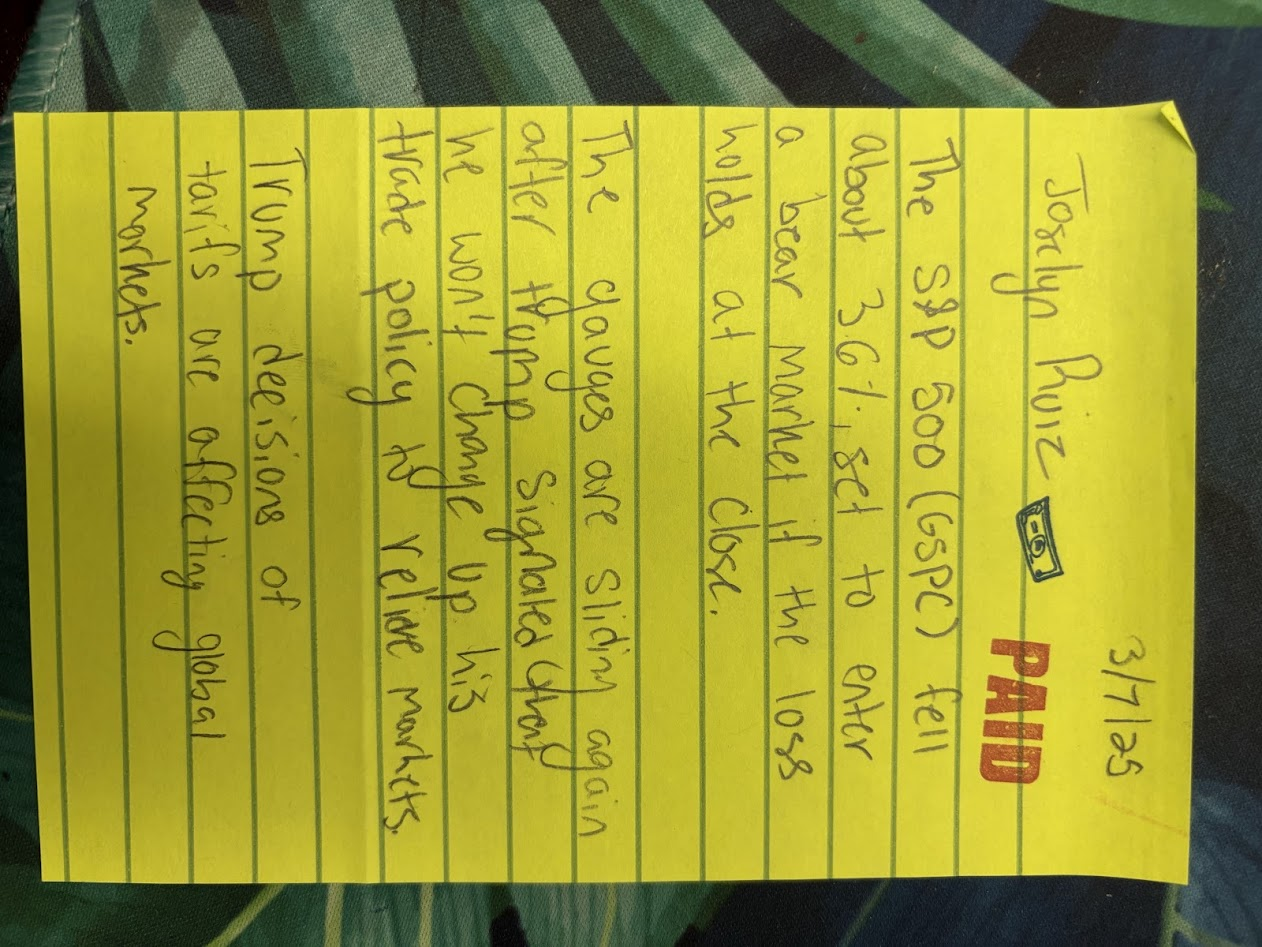 3/7/25
Joselyn Ruiz
PAID
The S&P 500 (GSPC) fell
about 3.6%, set to enter
a bear market if the loss
holds at the close.
The gauges are sliding again
after trump signaled that
he won't change up his
trade policy to relieve markets.
Trump decisions of
tarifs are affecting global
markets.